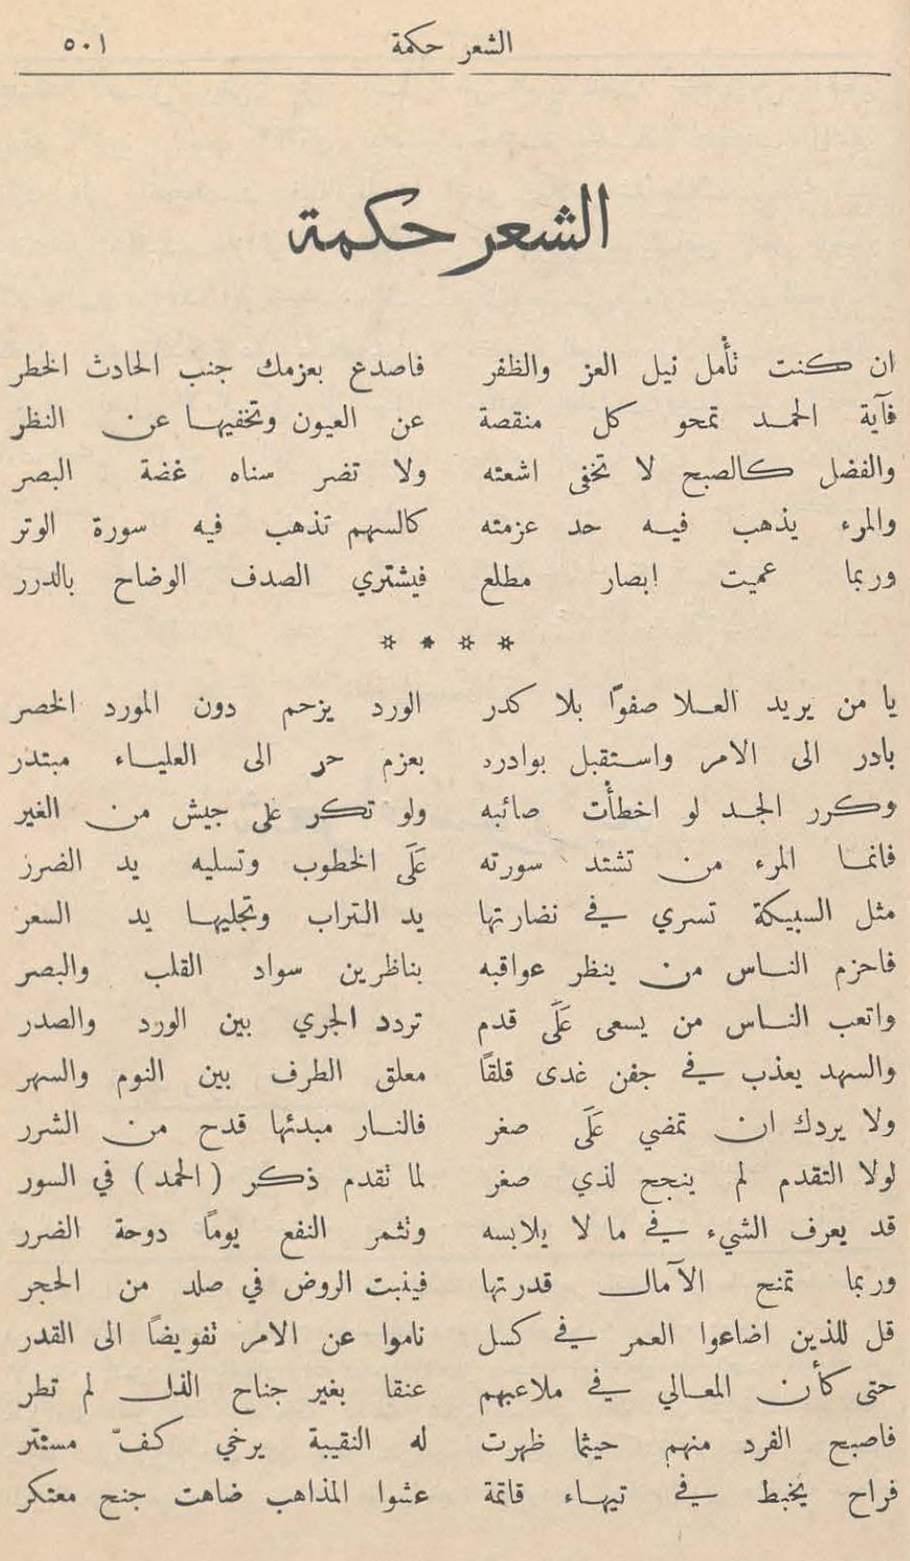 الشعر حكمة ٥٠١
الشعر حكمة
ان كنت تأمل نيل العز والظفر فاصدع بعزمك جنب الحادث الخطر
فآية الحمد تمحو كل منقصة عن العيون وتخفيها عن النظر
والفضل كالصبح لا تخفى اشعته ولا تضر سناه غضة البصر
والمرء يذهب فيه حد عزمته كالسهم تذهب فيه سورة الوتر
وربما عميت ابصار مطلع فيشتري الصدف الوضاح بالدرر
* * * *
يا من يريد العلا صفوًا بلا كدر الورد يزحم دون المورد الخصر
بادر الى الامر واستقبل بوادره بعزم حر الى العلياء مبتدر
وكرر الجد لو اخطأت صائبه ولو تكر على جيش من الغير
فانما المرء من تشتد سورته عَلَى الخطوب وتسليه يد الضرز
مثل السبيكة تسري في نضارتها يد التراب وتجليها يد السعر
فاحزم الناس من ينظر عواقبه بناظرين سواد القلب والبصر
واتعب الناس من يسعى عَلَى قدم تردد الجري بين الورد والصدر
والسهد يعذب في جفن غدى قلقًا معلق الطرف بين النوم والسهر
ولا يردك ان تمضي عَلَى صغر فالنار مبدئها قدح من الشرر
لولا التقدم لم ينجح لذي صغر لما تقدم ذكر (الحمد) في السور
قد يعرف الشيء في ما لا يلابسه وتثمر النفع يومًا دوحة الضرر
وربما تمنح الآمال قدرتها فينبت الروض في صلد من الحجر
قل للذين اضاعوا العمر في كسل ناموا عن الامر تفويضًا الى القدر
حتى كأن المعالي في ملاعبهم عنقا بغير جناح الذل لم تطر
فاصبح الفرد منهم حيثما ظهرت له النقيبة يرخي كفّ مستتر
فراح يخبط في تيهاء قاتمة عشوا المذاهب ضاهت جنح معتكر